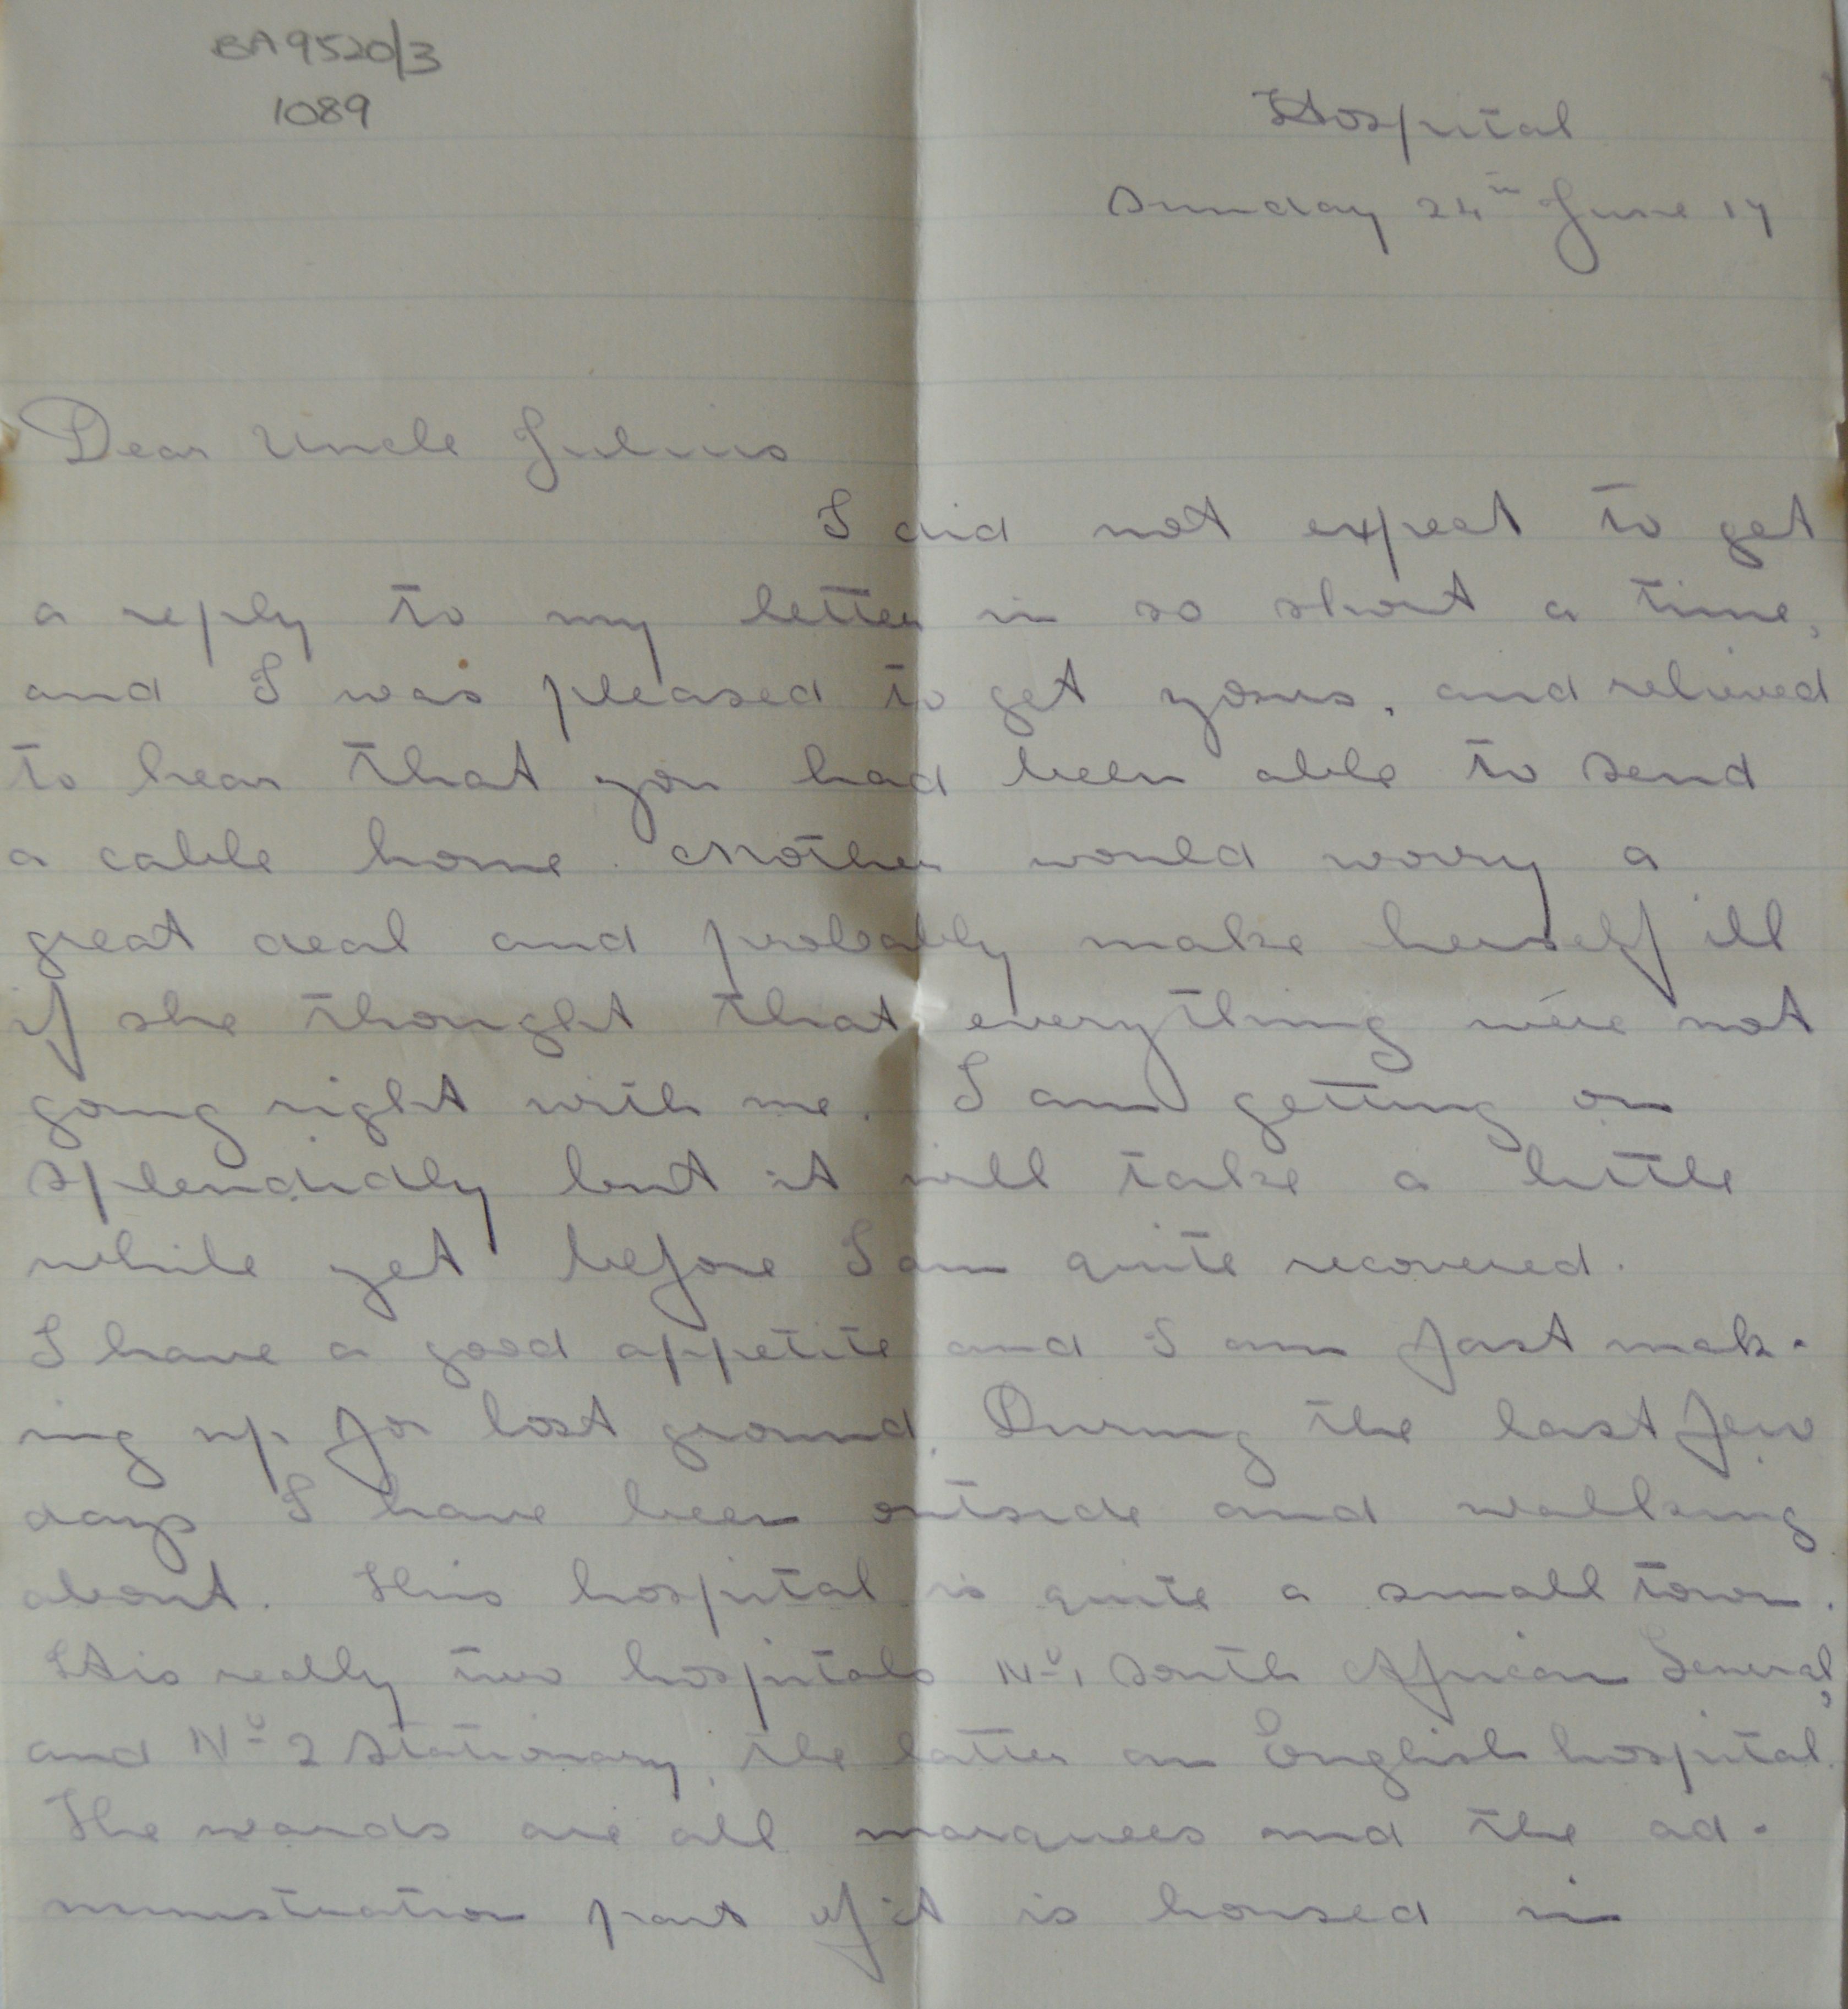 BA9520/3
1089
Hospital
Sunday 24th June 17
Dear Uncle Julius
I did not expect to get
a reply to my letter in so short a time,
and I was pleased to get yours, and relieved
to hear that you had been able to send
a cable home. Mother would worry a
great deal and probably make herself ill
if she thought that everything were not
going right with me. I am getting on
splendidly but it will take a little
while yet before I am quite recovered.
I have a good appetite and I am fast mak-
ing up for lost ground. During the last few
days I have been outside and walking
about. This hospital is quite a small town.
It is really two hospitals No 1 South African General,
and No 2 Stationary, the latter an English hospital.
The wards are all marquees and the ad-
ministration part of it is housed in